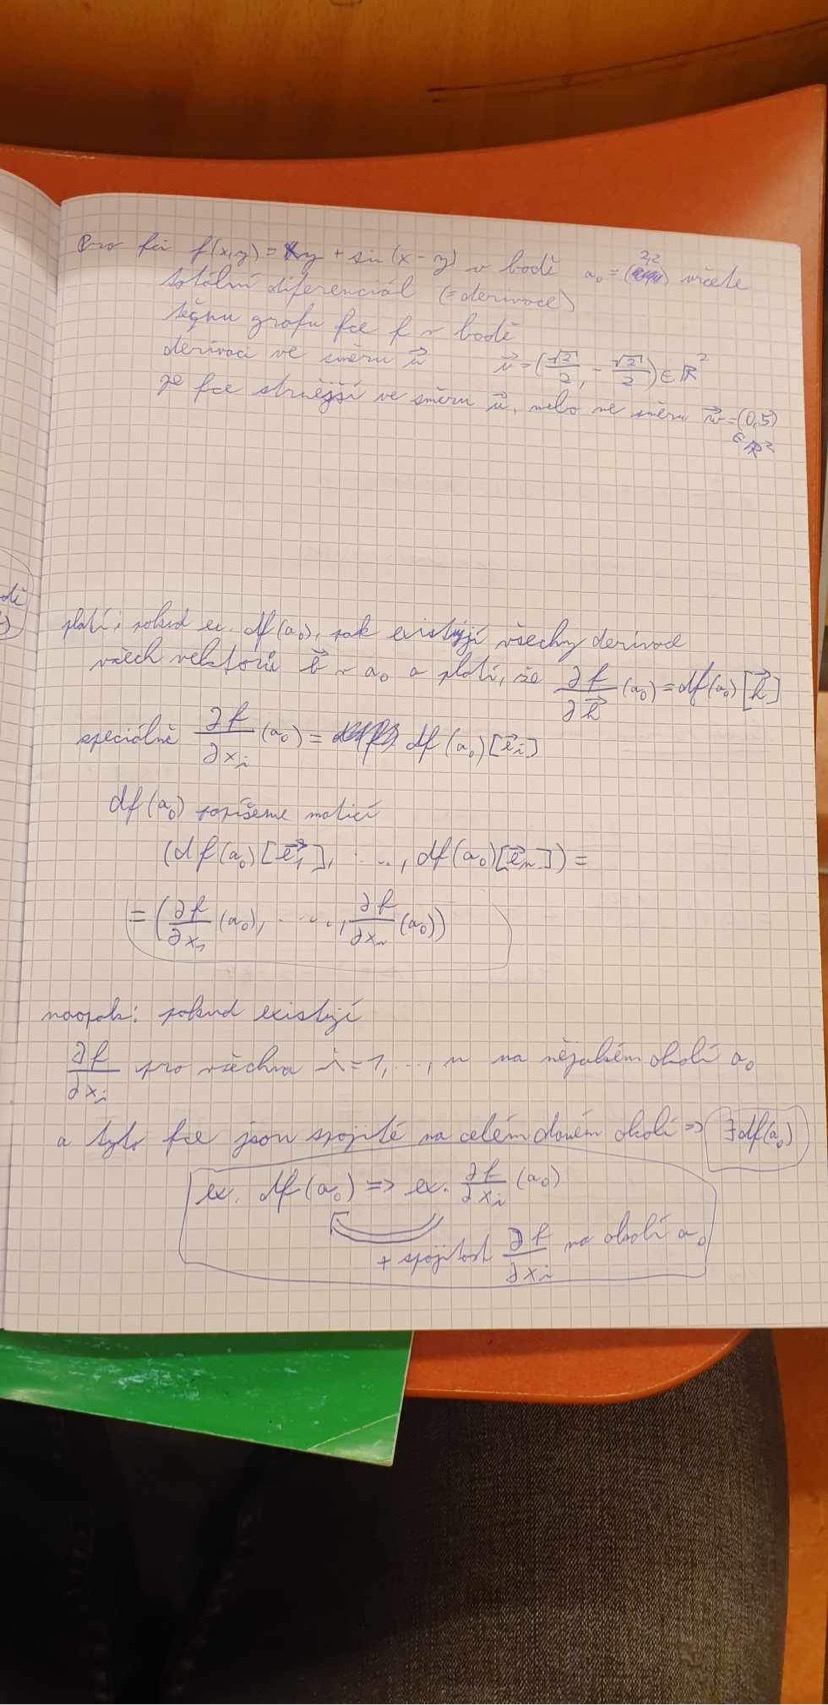 Pro fci f(x,y) = xy + sin(x-y) v bodě a₀ = (2,2) určete
totální diferenciál (=derivace)
tečnu grafu fce f v bodě
derivaci ve směru u⃗ v⃗ = (√2/2, -√2/2) ∈ ℝ²
je fce strmější ve směru u⃗, nebo ve směru w⃗ = (0,5)
∈ ℝ²
platí: pokud ex. df(a₀), pak existují všechny derivace
všech vektorů h⃗ v a₀ a platí, že ∂f/∂h⃗ (a₀) = df(a₀)[h⃗]
speciálně ∂f/∂xᵢ (a₀) = df(a₀)[e⃗ᵢ]
df(a₀) popíšeme maticí
(df(a₀)[e⃗₁], ..., df(a₀)[e⃗ₙ]) =
= (∂f/∂x₁ (a₀), ..., ∂f/∂xₙ (a₀))
naopak: pokud existují
∂f/∂xᵢ pro všechna i=1, ..., n na nějakém okolí a₀
a tyto fce jsou spojité na celém daném okolí => ∃df(a₀)
ex. df(a₀) => ex. ∂f/∂xᵢ (a₀)
+ spojitost ∂f/∂xᵢ na okolí a₀